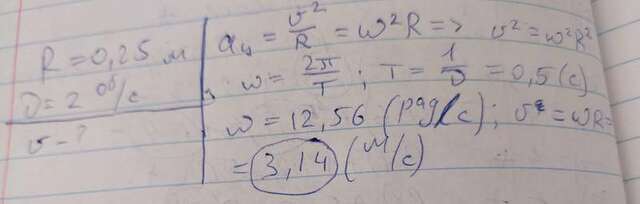 R = 0,25 м
ν = 2 об/с
υ - ?
aц = υ²/R = ω²R => υ² = ω²R²
ω = 2π/T ; T = 1/ν = 0,5 (с)
ω = 12,56 (рад/с) ; υ = ωR =
= 3,14 (м/с)